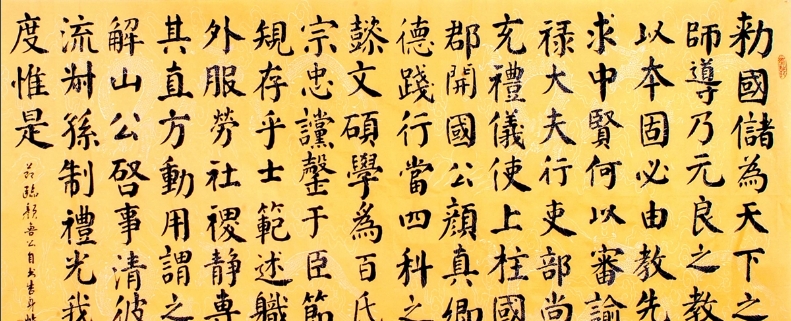 勑國儲為天下之
師導乃元良之教
以本固必由教先
求中賢何以審諭
禄大夫行吏部尚
充禮儀使上柱國
郡開國公顔真卿
德踐行當四科之
懿文碩學爲百氏
宗忠讜罄于臣節
規存乎士範述職
外服勞社稷静專
其直方動用謂之
解山公啓事清彼
流叔孫制禮光我
度惟是